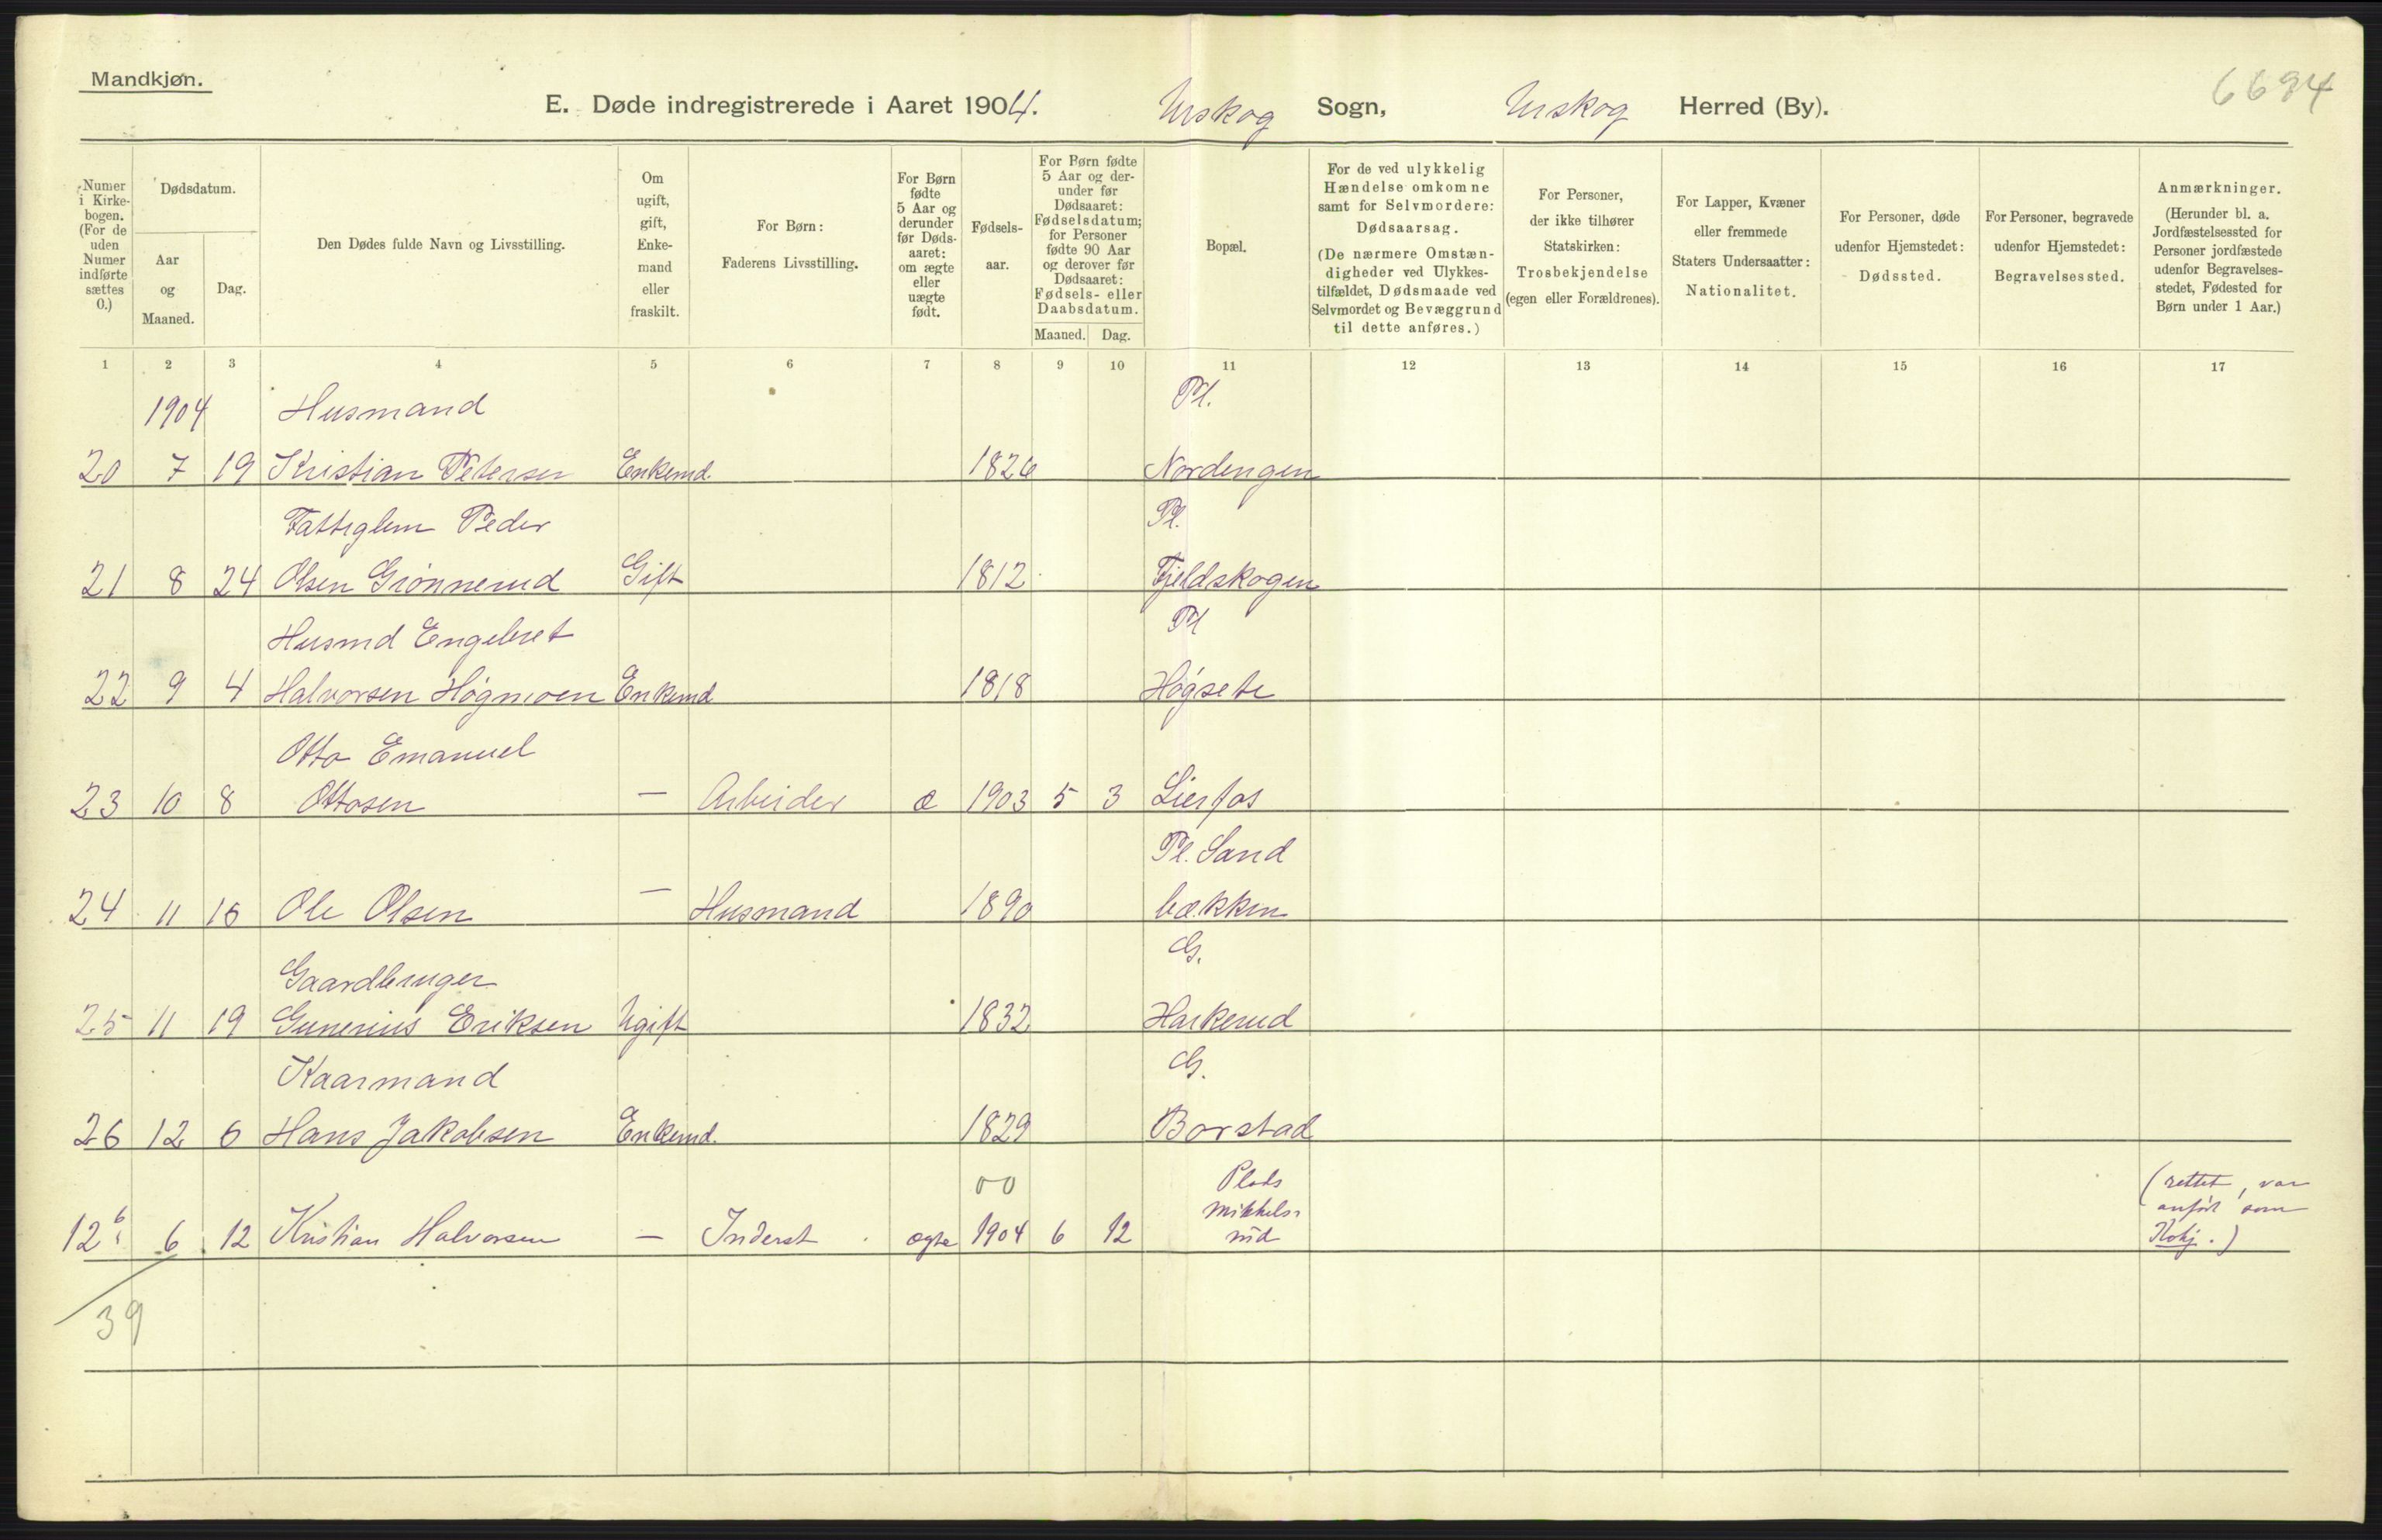 Mandkjøn.
6694
E. Døde indregistrerede i Aaret 1904. Urskog Sogn, Urskog Herred (By).
Numer i Kirke-bogen. (For de uden Numer indførte sættes 0.)
Dødsdatum.
Aar og Maaned.
Dag.
Den Dødes fulde Navn og Livsstilling.
Om ugift, gift, Enke-mand eller fraskilt.
For Børn: Faderens Livsstilling.
For Børn fødte 5 Aar og derunder før Døds-aaret: om ægte eller uægte født.
Fødsels-aar.
For Børn fødte 5 Aar og der-under før Dødsaaret: Fødselsdatum; for Personer fødte 90 Aar og derover før Dødsaaret: Fødsels- eller Daabsdatum.
Maaned. Dag.
Bopæl.
For de ved ulykkelig Hændelse omkomne samt for Selvmordere: Dødsaarsag. (De nærmere Omstæn-digheder ved Ulykkes-tilfældet, Dødsmaade ved Selvmordet og Bevæggrund til dette anføres.)
For Personer, der ikke tilhører Statskirken: Trosbekjendelse (egen eller Forældrenes).
For Lapper, Kvæner eller fremmede Staters Undersaatter: Nationalitet.
For Personer, døde udenfor Hjemstedet: Dødssted.
For Personer, begravede udenfor Hjemstedet: Begravelsessted.
Anmærkninger. (Herunder bl. a. Jordfæstelsessted for Personer jordfæstede udenfor Begravelses-stedet, Fødested for Børn under 1 Aar.)
1 2 3 4 5 6 7 8 9 10 11 12 13 14 15 16 17
1904 Husmand Pl.
20 7 19 Kristian Petersen Enkemd. 1826 Nordengen
Fattiglem Peder Pl.
21 8 24 Olsen Grønnerud Gift 1812 Fjeldskogen
Husmd Engebret Pl
22 9 4 Halvorsen Høgmoen Enkemd 1818 Høgsete
Otto Emanuel
23 10 8 Ottosen — Arbeider æ 1903 5 3 Lierfos
Pl. Sand
24 11 16 Ole Olsen — Husmand 1890 bækken
Gaardbruger G.
25 11 19 Gunerius Eriksen Ugift 1832 Harkerud
Kaarmand G.
26 12 6 Hans Jakobsen Enkemd. 1829 Borstad
00 Plads (rettet, var
Mikkels- anført som
12b 6 12 Kristian Halvorsen — Inderst ægte 1904 6 12 rud Kvkj.)
39